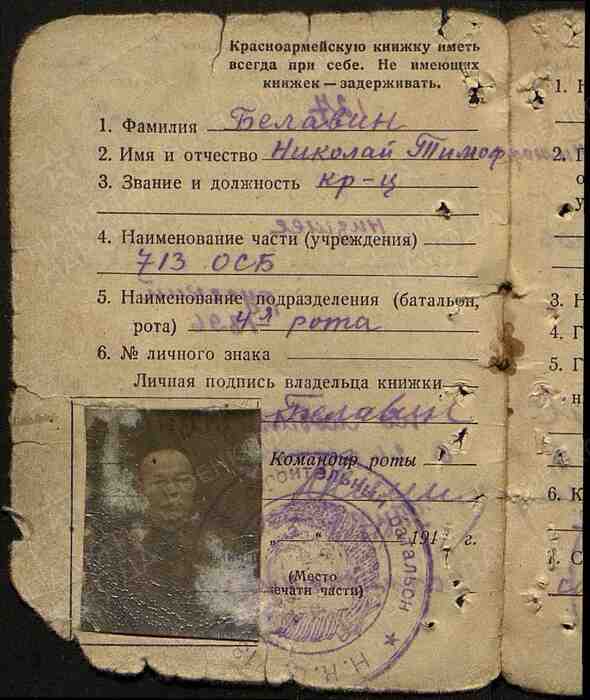 Красноармейскую книжку иметь
всегда при себе. Не имеющих
книжек — задерживать.
1. Фамилия Белавин
2. Имя и отчество Николай Тимоф
3. Звание и должность кр-ц
4. Наименование части (учреждения)
713 ОСБ
5. Наименование подразделения (батальон,
рота) 4я рота
6. № личного знака
Личная подпись владельца книжки
Белавин
Командир роты
„ “ 194 г.
(Место
печати части)
строительный батальон ★ Н. К.
1. Н
2. Г
3. Н
4. Г
5. Г
6. К